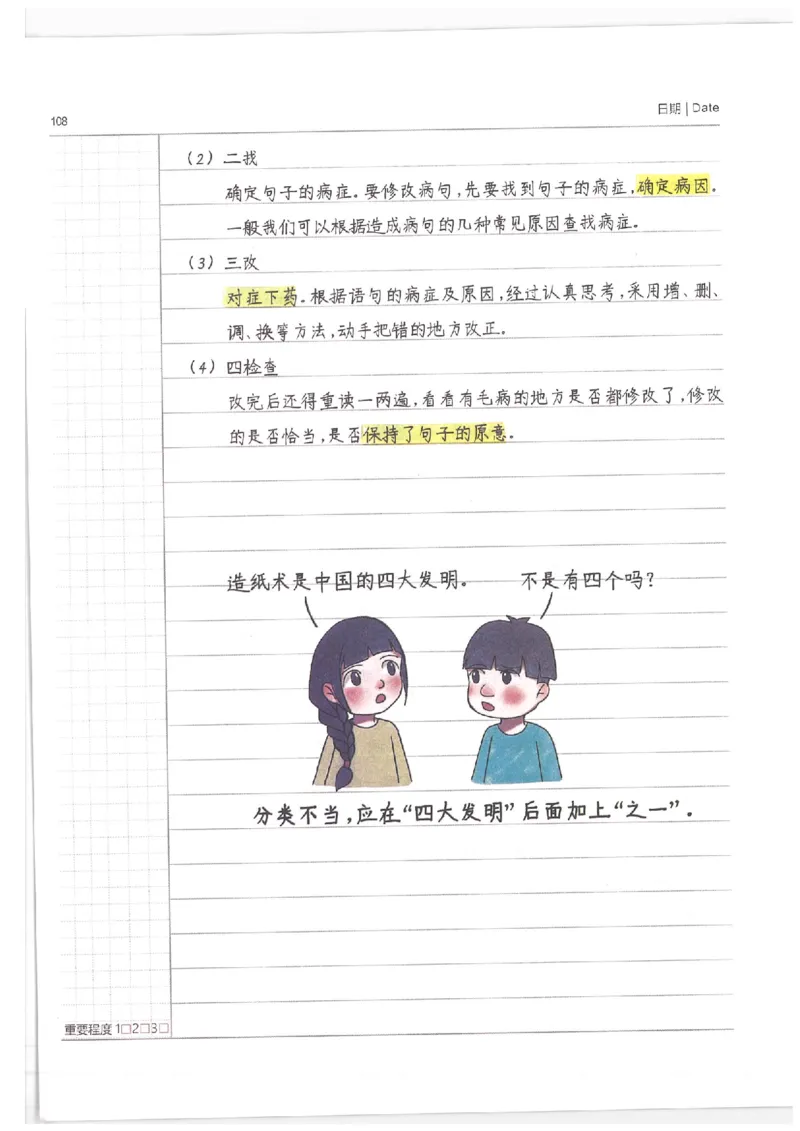 108
日期 | Date
(2) 二找
确定句子的病症。要修改病句,先要找到句子的病症,确定病因。
一般我们可以根据造成病句的几种常见原因查找病症。
(3) 三改
对症下药。根据语句的病症及原因,经过认真思考,采用增、删、
调、换等方法,动手把错的地方改正。
(4) 四检查
改完后还得重读一两遍,看看有毛病的地方是否都修改了,修改
的是否恰当,是否保持了句子的原意。
造纸术是中国的四大发明。
不是有四个吗?
分类不当,应在“四大发明”后面加上“之一”。
重要程度 1□2□3□